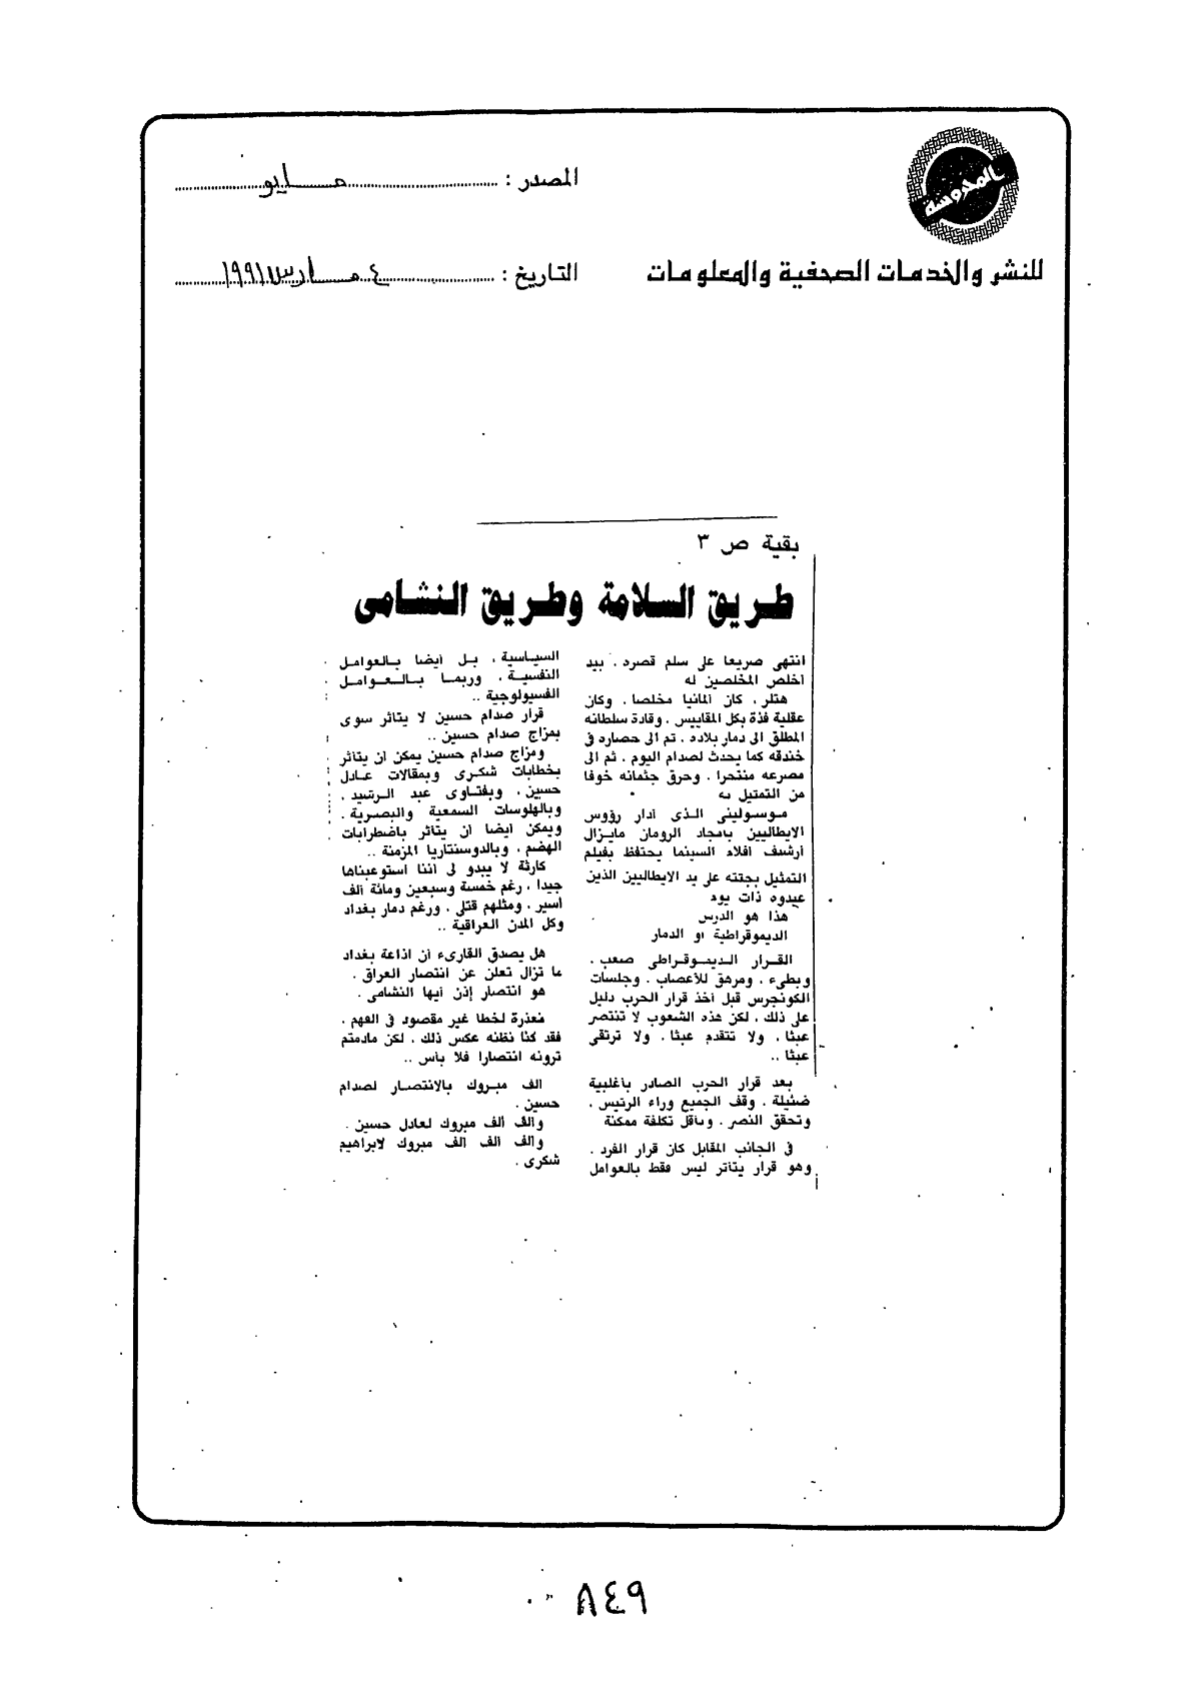 المحروسة
للنشر والخدمات الصحفية والمعلومات
المصدر : مايو
التاريخ : ٤ مارس ١٩٩١
بقية ص ٣
طريق السلامة وطريق النشامى
انتهى صريعا على سلم قصره . بيد
اخلص المخلصين له
هتلر ، كان المانيا مخلصا . وكان
عقلية فذة بكل المقاييس . وقاده سلطانه
المطلق الى دمار بلاده . تم الى حصاره فى
خندقه كما يحدث لصدام اليوم . ثم الى
مصرعه منتحرا . وحرق جثمانه خوفا
من التمثيل به
موسولينى الذى ادار رؤوس
الايطاليين بامجاد الرومان مايزال
ارشيف افلام السينما يحتفظ بفيلم
التمثيل بجثته على يد الايطاليين الذين
عبدوه ذات يوم
هذا هو الدرس
الديموقراطية او الدمار
القرار الديموقراطى صعب .
وبطىء . ومرهق للأعصاب . وجلسات
الكونجرس قبل أخذ قرار الحرب دليل
على ذلك . لكن هذه الشعوب لا تنتصر
عبثا . ولا تتقدم عبثا . ولا ترتقى
عبثا ..
بعد قرار الحرب الصادر بأغلبية
ضئيلة . وقف الجميع وراء الرئيس .
وتحقق النصر . وباقل تكلفة ممكنة
فى الجانب المقابل كان قرار الفرد .
وهو قرار يتأثر ليس فقط بالعوامل
السياسية . بل أيضا بالعوامل
النفسية . وربما بالعوامل
الفسيولوجية ..
قرار صدام حسين لا يتاثر سوى
بمزاج صدام حسين ..
ومزاج صدام حسين يمكن ان يتأثر
بخطابات شكرى وبمقالات عادل
حسين . وبفتاوى عبد الرشيد .
وبالهلوسات السمعية والبصرية .
ويمكن ايضا ان يتاثر باضطرابات
الهضم . وبالدوسنتاريا المزمنة ..
كارثة لا يبدو لى اننا استوعبناها
جيدا . رغم خمسة وسبعين ومائة الف
أسير . ومثلهم قتلى . ورغم دمار بغداد
وكل المدن العراقية ..
هل يصدق القارىء أن اذاعة بغداد
ما تزال تعلن عن انتصار العراق .
هو انتصار إذن أيها النشامى .
معذرة لخطا غير مقصود فى الفهم .
فقد كنا نظنه عكس ذلك . لكن مادمتم
ترونه انتصارا فلا بأس ..
الف مبروك بالانتصار لصدام
حسين .
والف ألف مبروك لعادل حسين .
والف الف الف مبروك لابراهيم
شكرى .
٨٤٩